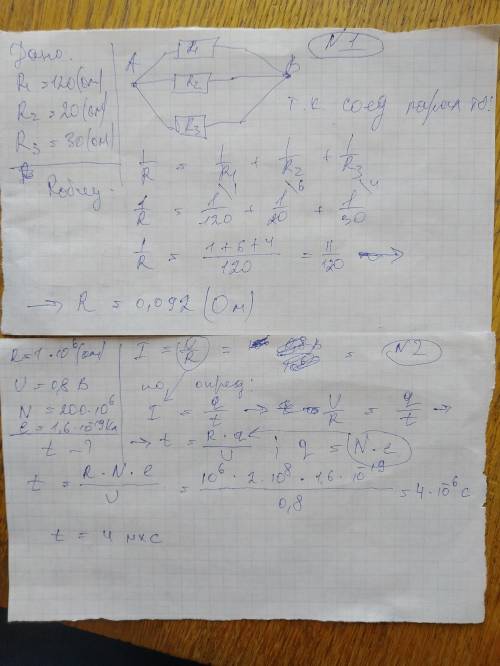 Дано:
R1 = 120 (Ом)
R2 = 20 (Ом)
R3 = 30 (Ом)
Rобщ -
A R1 R2 R3 B
N1
Т.к соед парал то:
1/R = 1/R1 + 1/R2 + 1/R3
1/R = 1/120 + 1/20 + 1/30
1/R = (1+6+4)/120 = 11/120 →
→ R = 0,092 (Ом)
R = 1·10^6 (Ом)
U = 0,8 В
N = 200·10^6
e = 1,6·10^-19 Кл
t - ?
I = U/R = =
N2
по опред:
I = q/t → U/R = q/t →
→ t = R·q/U ; q = N·e
t = R·N·e/U = 10^6 · 2·10^8 · 1,6·10^-19 / 0,8 = 4·10^-6 с
t = 4 мкс